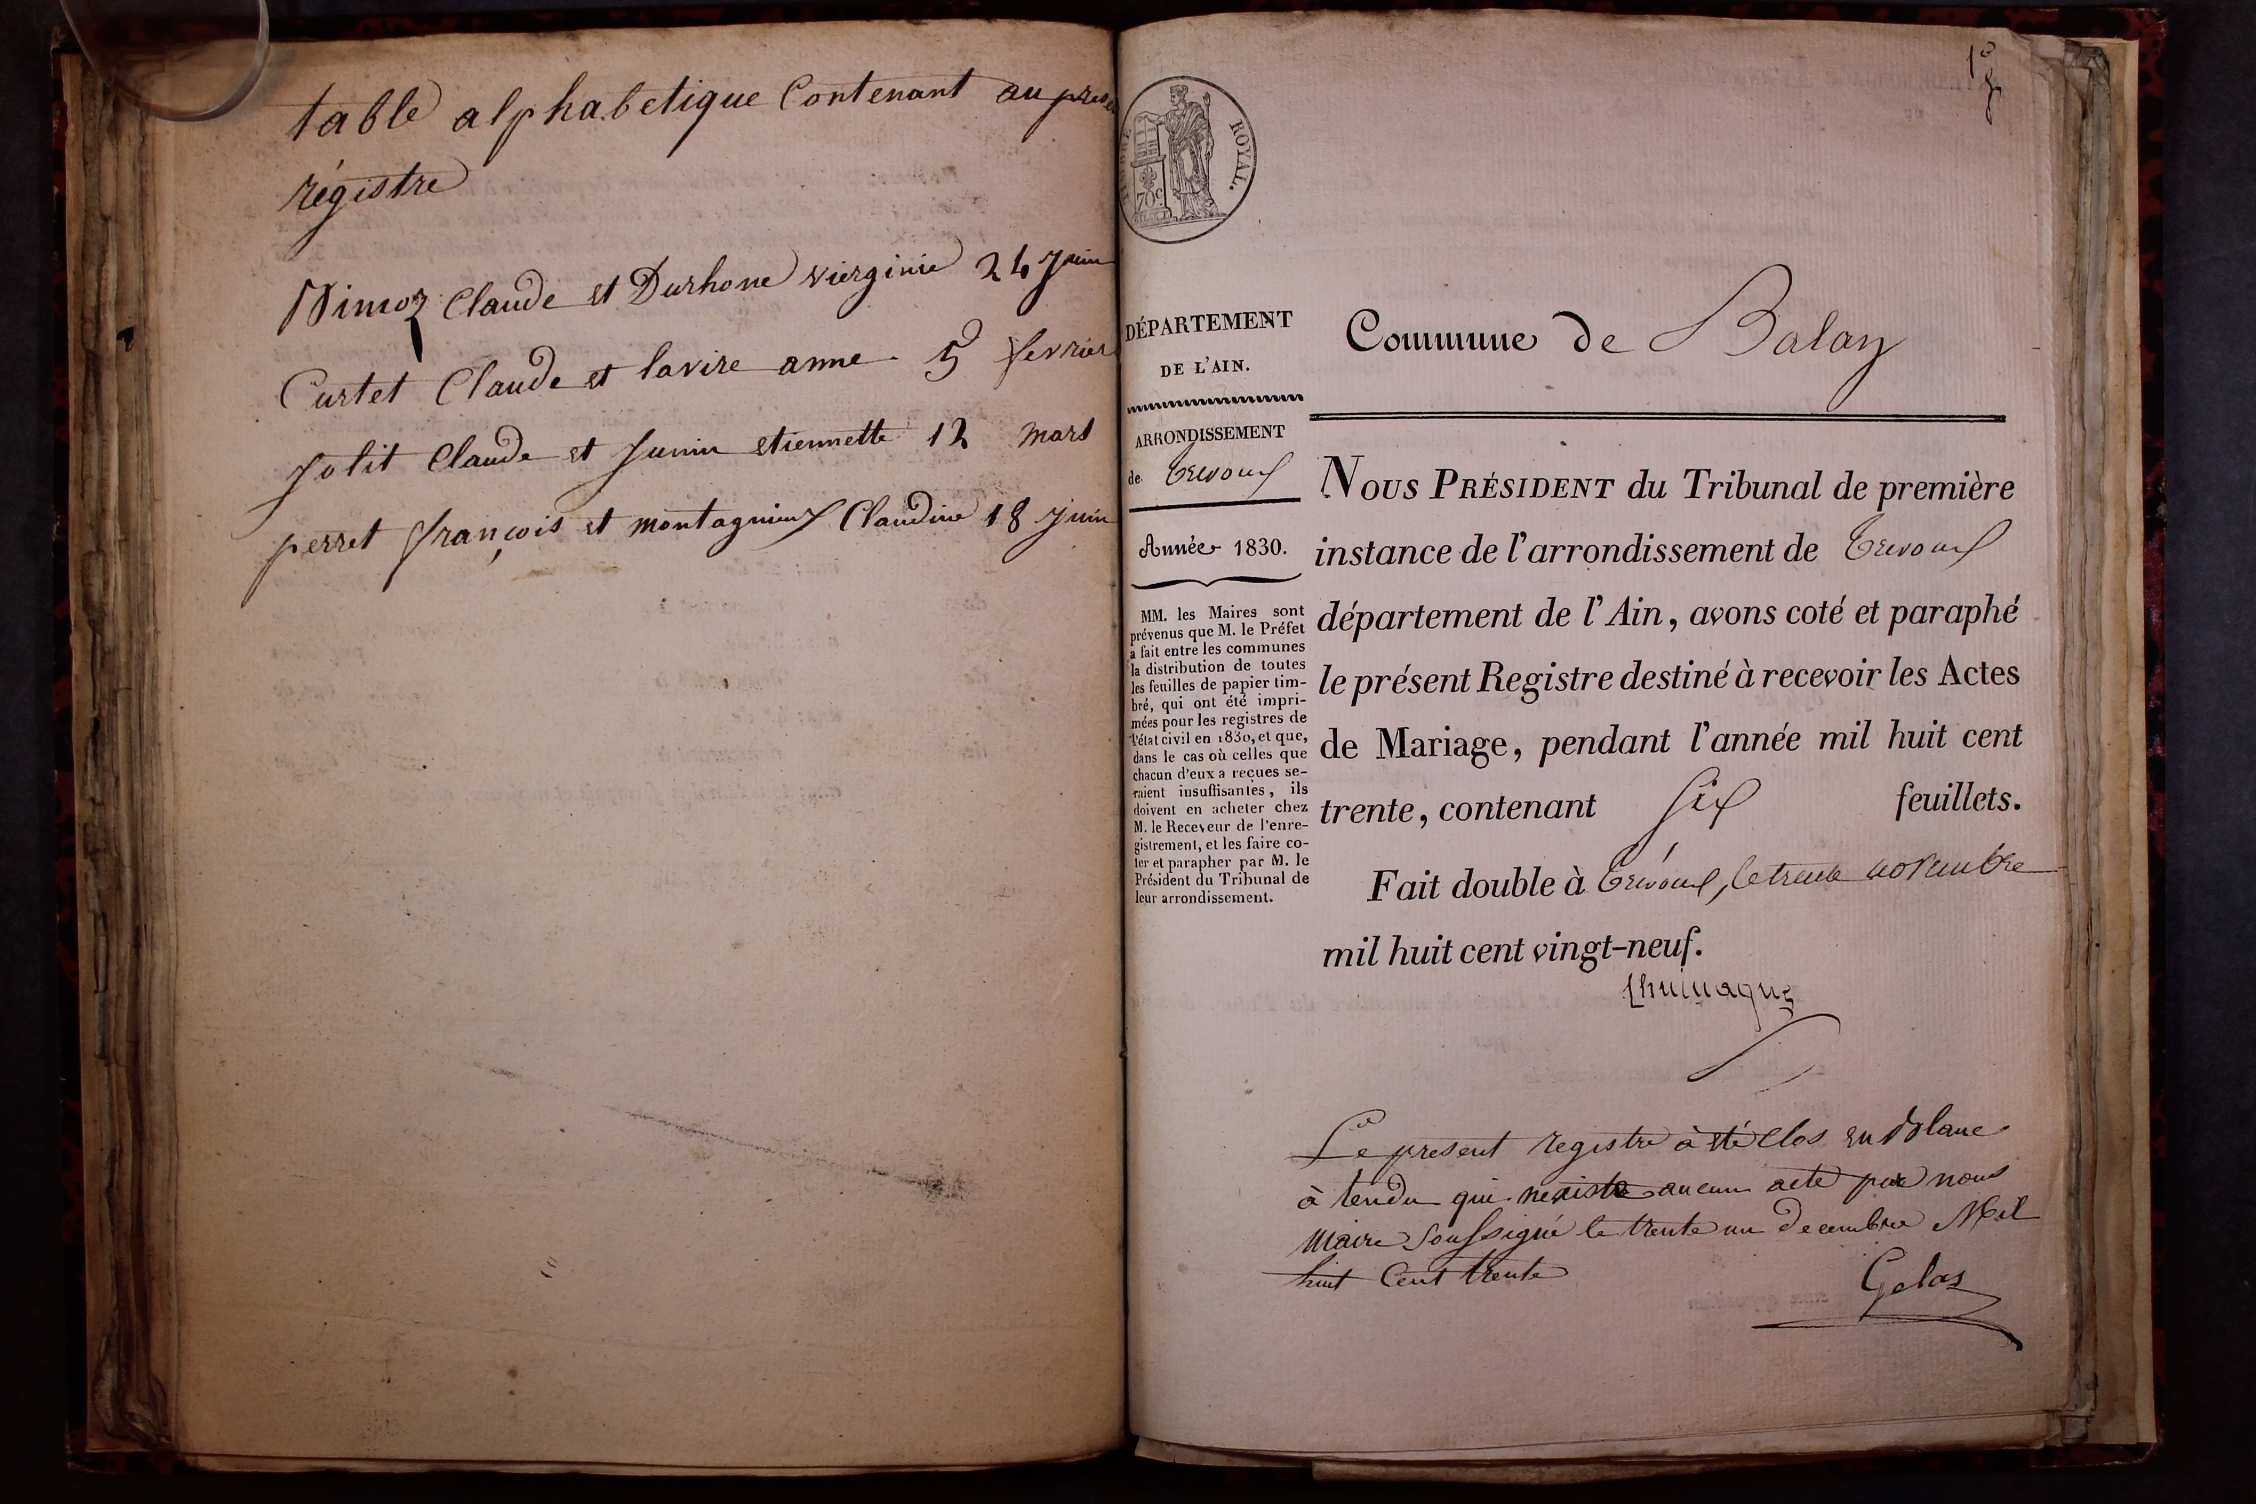 table alphabetique Contenant au prese
régistre
Dimoz Claude et Durhone vierginie 24 Juin
Curtet Claude et lavire anne 5 fevrier
Jolit Claude et Junin etiennette 12 mars
perret françois et montagnieux Claudine 18 juin
1e
ROYAL.
70c
DÉPARTEMENT
DE L'AIN.
ARRONDISSEMENT
de Trevoux
Année 1830.
MM. les Maires sont
prévenus que M. le Préfet
a fait entre les communes
la distribution de toutes
les feuilles de papier tim-
bré, qui ont été impri-
mées pour les registres de
l'état civil en 1830, et que,
dans le cas où celles que
chacun d'eux a reçues se-
raient insuffisantes, ils
doivent en acheter chez
M. le Receveur de l'enre-
gistrement, et les faire co-
ter et parapher par M. le
Président du Tribunal de
leur arrondissement.
Commune de Balan
NOUS PRÉSIDENT du Tribunal de première
instance de l'arrondissement de Trevoux
département de l'Ain, avons coté et paraphé
le présent Registre destiné à recevoir les Actes
de Mariage, pendant l'année mil huit cent
trente, contenant six feuillets.
Fait double à Trévoux, le trente novembre
mil huit cent vingt-neuf.
Le present registre à été Clos en Blanc
à tendu qui nexiste aucun acte par nous
Maire Soussigné le trente un Decembre Mil
huit Cent trente
Gelas